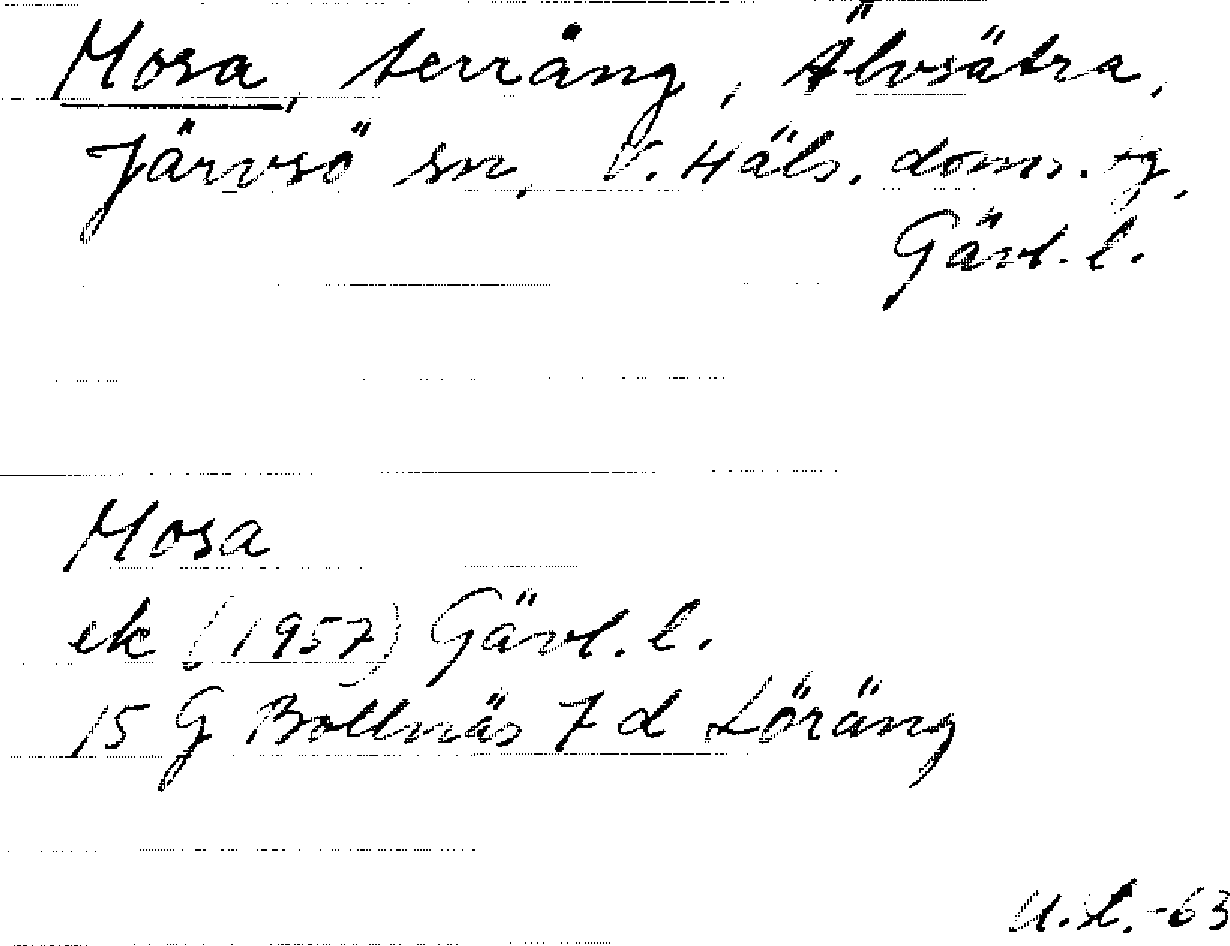 Mosa, terräng, Älvsätra,
Järvsö sn, V. Häls. doms. g,
Gävl. l.
Mosa
ek (1957) Gävl. l.
15 G Bollnäs 7 d Löräng
U.L. -63